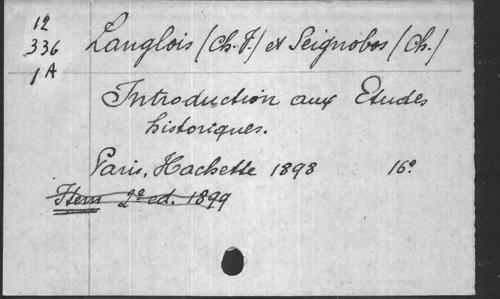 12
336 Langlois (Ch. V.) et Seignobos (Ch.)
1A
Introduction aux Etudes
historiques.
Paris, Hachette 1898 16°
Item 2e ed. 1899